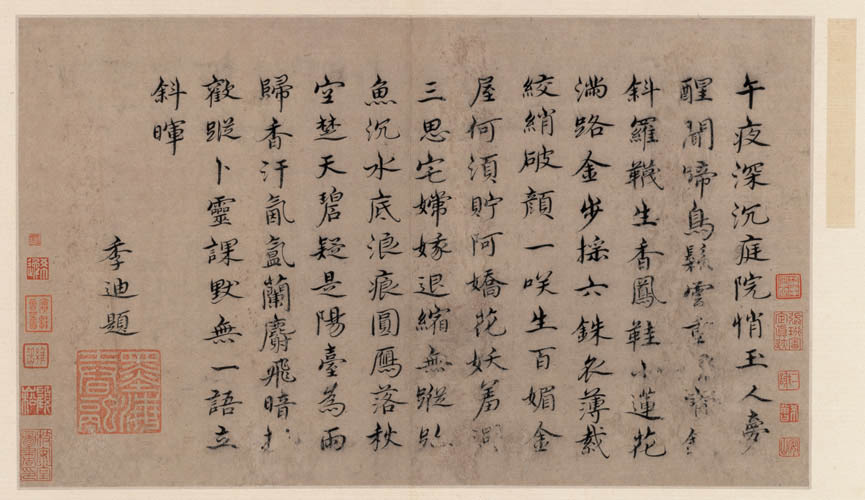 午夜深沉庭院悄玉人夢
醒聞啼鳥雲
斜羅韈生香鳳鞋小蓮花
滿路金步搖六銖衣薄裁
絞綃破顏一咲生百媚金
屋何須貯阿嬌花妖羞
三思宅嫦娥退縮無蹤跡
魚沉水底浪痕圓鴈落秋
空楚天碧疑是陽臺為雨
歸香汗氤氳蘭麝飛暗
歡蹤卜靈課默無一語立
斜暉
季迪題